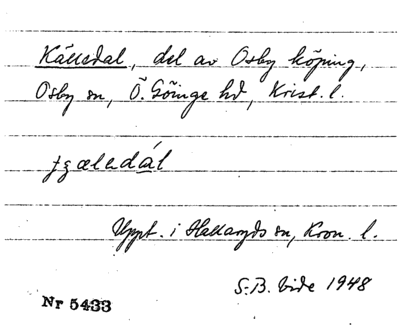 Källsdal, del av Osby köping,
Osby sn, Ö. Göinge hd, Krist. l.
Uppt. i Hallaryds sn, Kron. l.
S.B. Vide 1948
Nr 5433